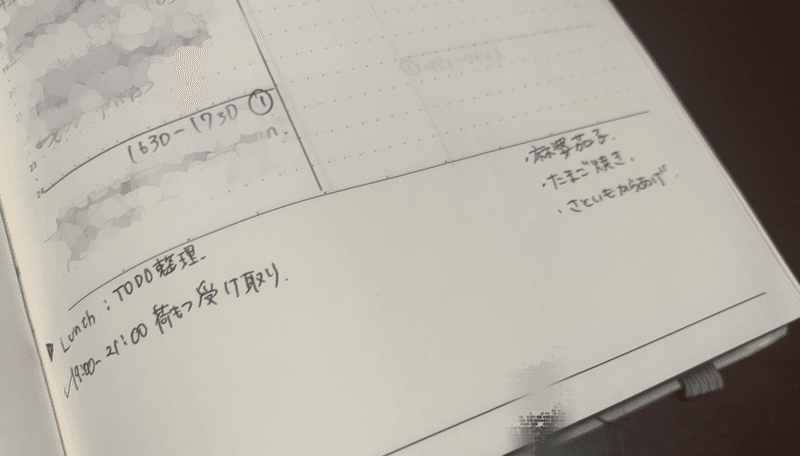 23
24
1630-1730 ①
・麻婆茄子
・たまご焼き
・さといもからあげ
Lunch : TODO整理
19:00-21:00 荷もつ受け取り